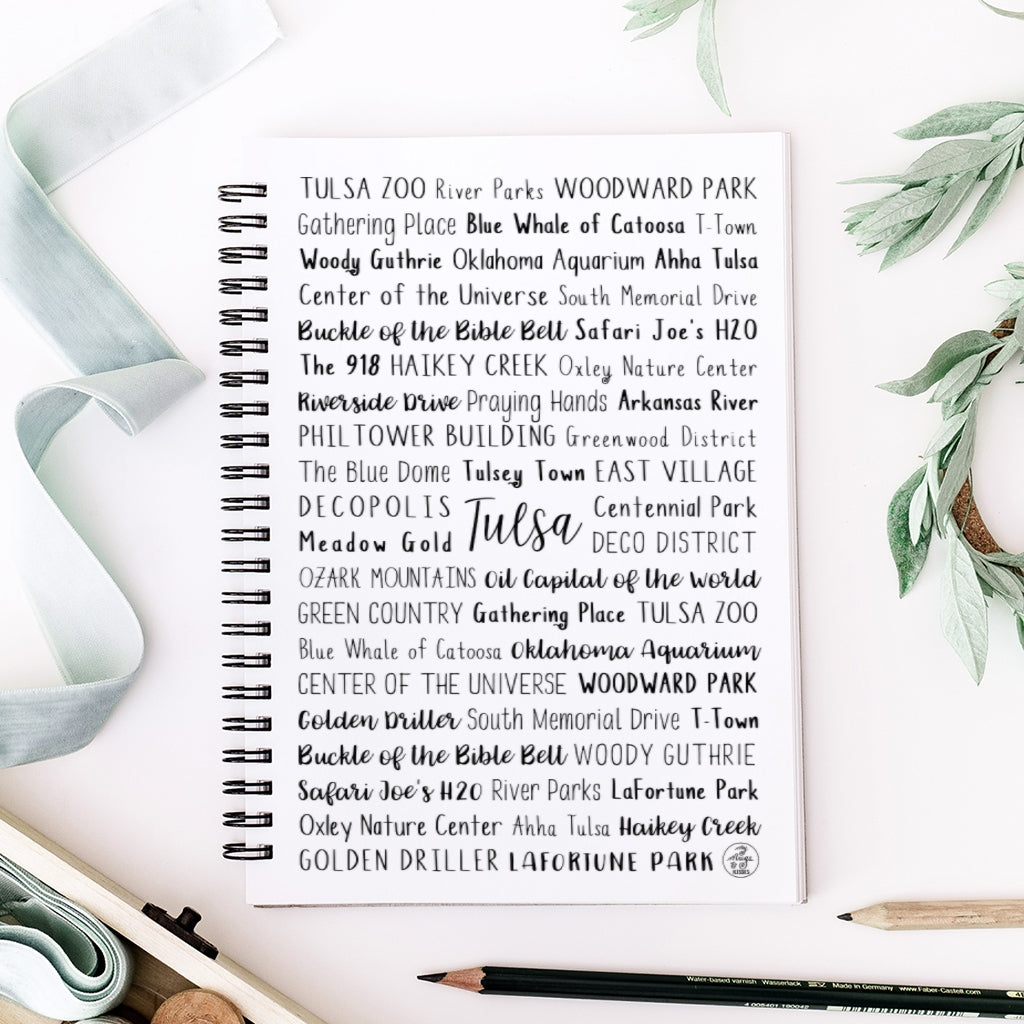 TULSA ZOO River Parks WOODWARD PARK
Gathering Place Blue Whale of Catoosa T-Town
Woody Guthrie Oklahoma Aquarium Ahha Tulsa
Center of the Universe South Memorial Drive
Buckle of the Bible Belt Safari Joe's H2O
The 918 HAIKEY CREEK Oxley Nature Center
Riverside Drive Praying Hands Arkansas River
PHILTOWER BUILDING Greenwood District
The Blue Dome Tulsey Town EAST VILLAGE
DECOPOLIS Tulsa Centennial Park
Meadow Gold DECO DISTRICT
OZARK MOUNTAINS Oil Capital of the World
GREEN COUNTRY Gathering Place TULSA ZOO
Blue Whale of Catoosa Oklahoma Aquarium
CENTER OF THE UNIVERSE WOODWARD PARK
Golden Driller South Memorial Drive T-Town
Buckle of the Bible Belt WOODY GUTHRIE
Safari Joe's H2O River Parks LaFortune Park
Oxley Nature Center Ahha Tulsa Haikey Creek
GOLDEN DRILLER LAFORTUNE PARK
Water-based varnish Wasserlack Made in Germany www.Faber-Castell.com
4 005401 190042